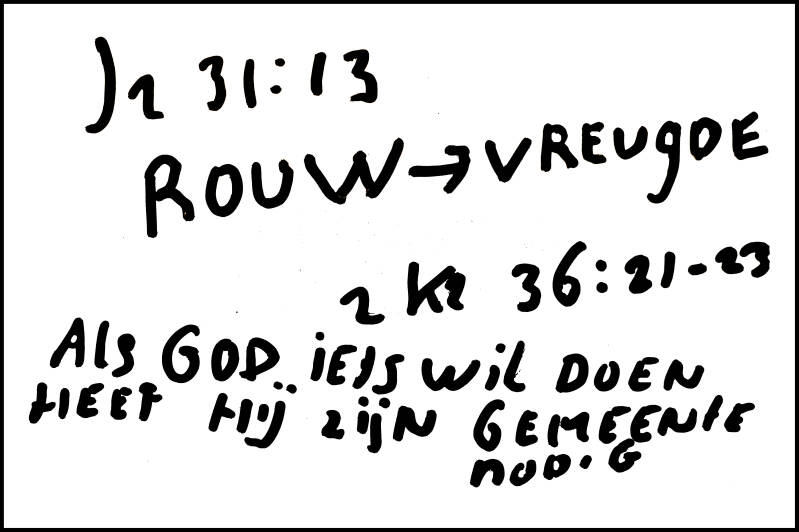 Jr 31:13
ROUW → VREUgDE
2 Kr 36:21-23
Als GOD iets wil DOEN
HEEFT Hij zijN GEMEENTE
nOD.G